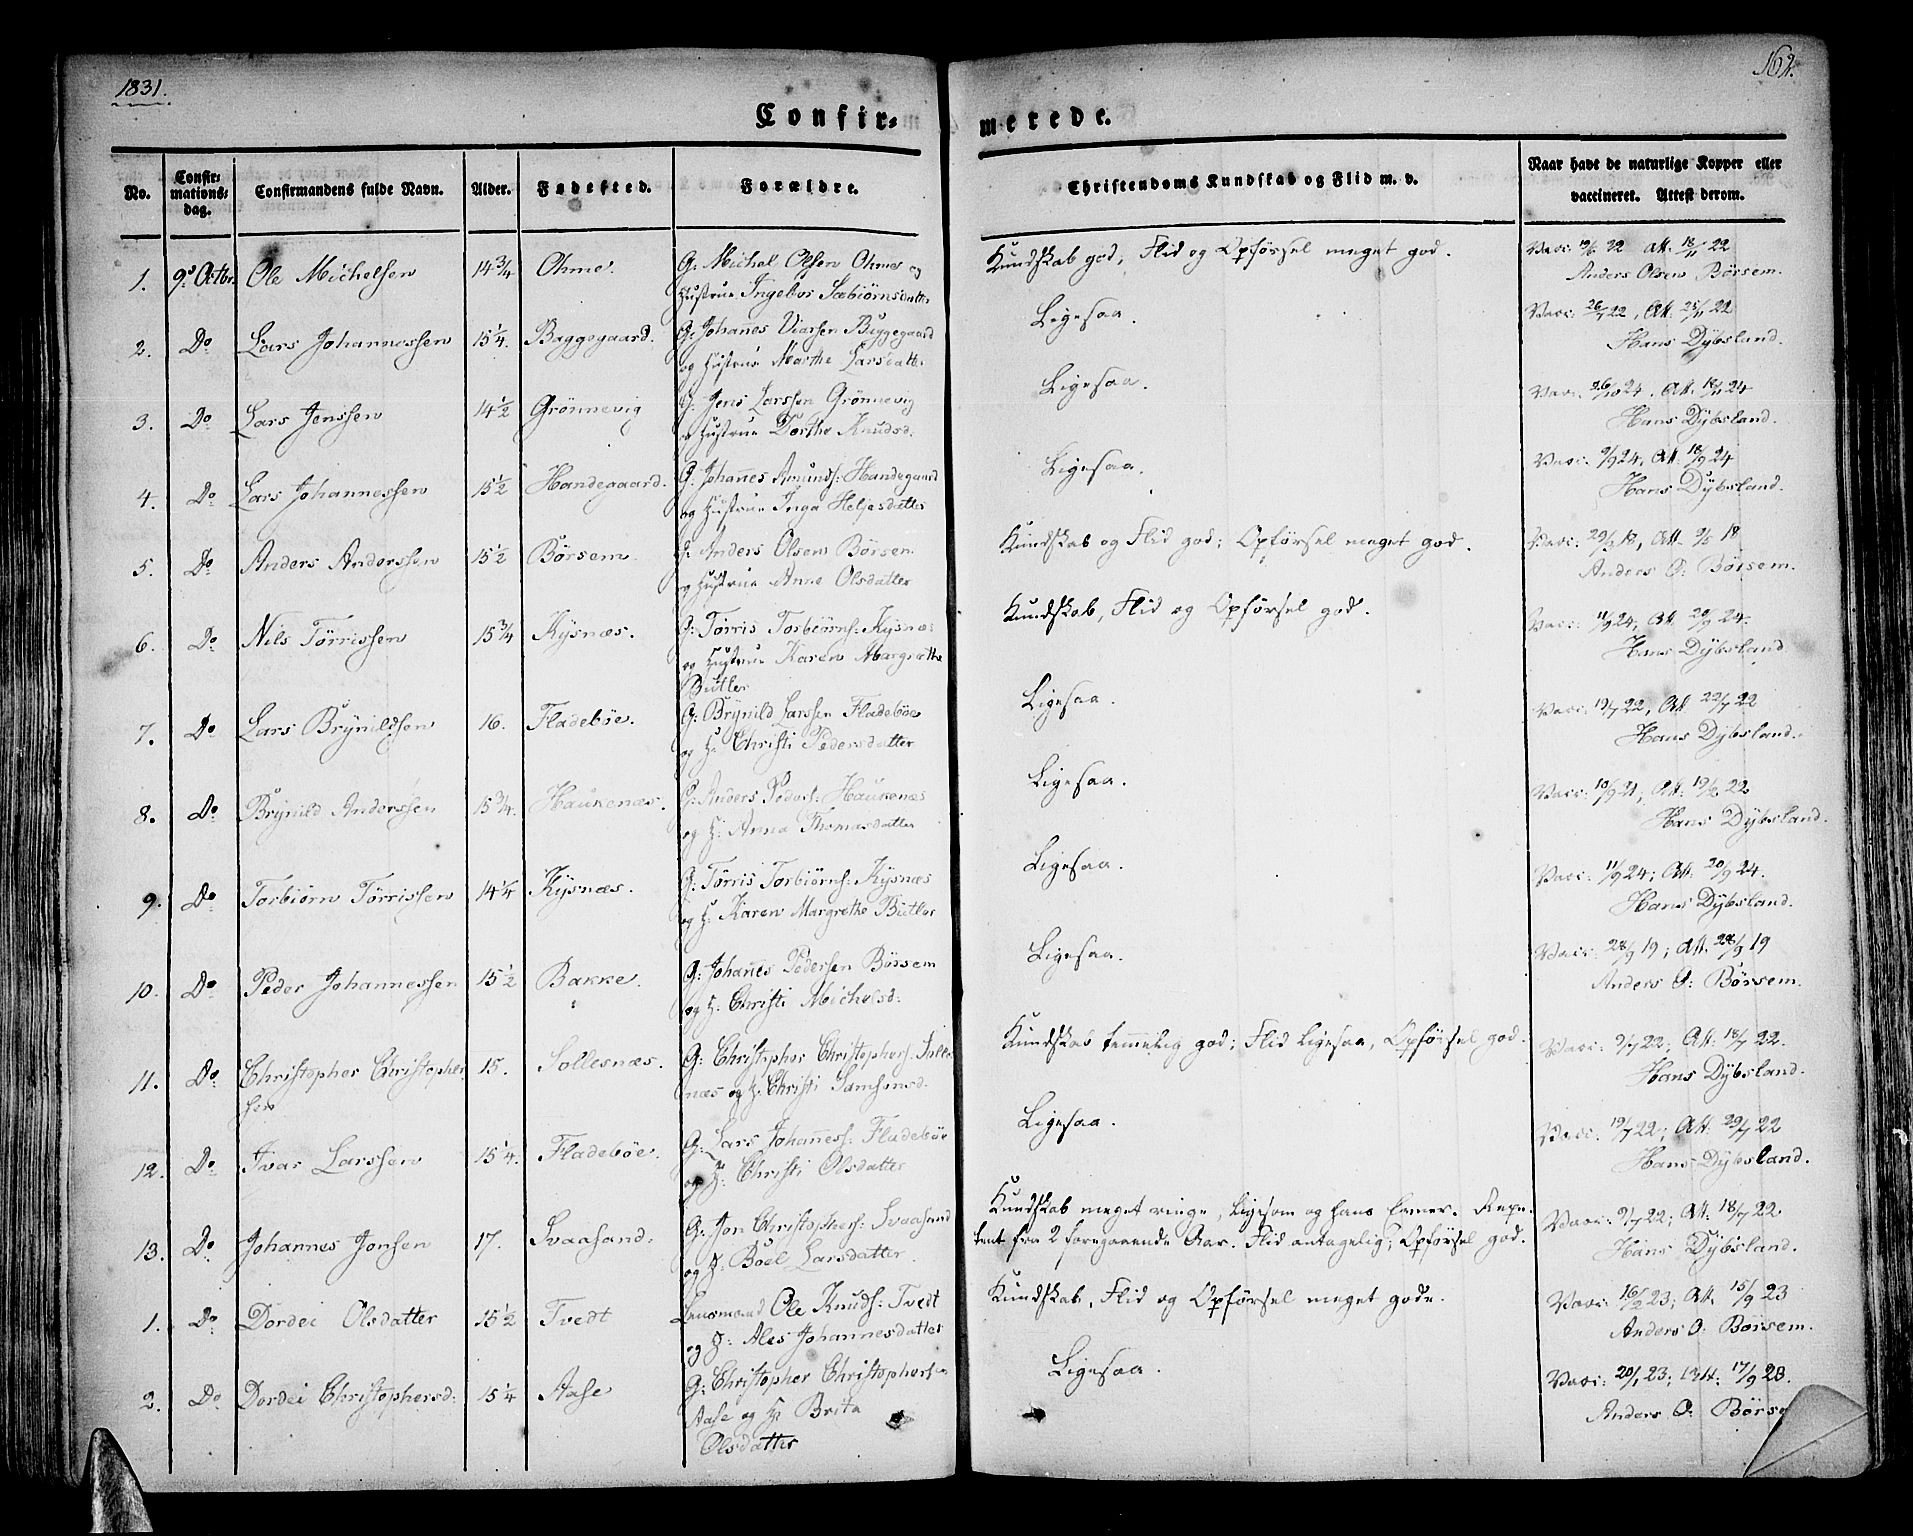 1831.
162.
Confir-
merede.
No.
Confir-
mations-
dag.
Confirmandens fulde Navn.
Alder.
Fødested.
Forældre.
Christendoms Kundskab og Flid m. v.
Naar havt de naturlige Kopper eller
vaccineret. Attest derom.
1. 9de Octbr. Ole Michelsen 14 3/4 Ohme. G: Michel Olsen Ohme og
Hustrue Ingebor
Kundskab god; Flid og Opførsel meget god.
Vacc: 19/6 22 Att: 18/11 22
Anders Olsen Børsem.
2. Do Lars Johannessen 15 1/4. Baggegaard. G: Johanes Viarsen Baggegaard
og Hustrue Marthe Larsdatter
Ligesaa.
Vacc: 26/7 22, Att: 25/11 22
Hans Dybsland.
3. Do Lars Jenssen 14 1/2 Grönnevig G: Jens Larssen Grönnevig
og Hustrue Dorthe Knudsd.
Ligesaa.
Vacc: 26/10 24, Att. 18/11 24
Hans Dybsland.
4. Do Lars Johannessen 15 1/2 Handegaard. G: Johanes Amunds: Handegaard
og Hustrue Inga Heljesdatter
Ligesaa.
Vacc: 9/9 24, Att. 18/9 24
Hans Dybsland.
5. Do Anders Anderssen 15 1/2 Börsem G: Anders Olsen Börsem
og Hustrue Anne Olsdatter
Kundskab og Flid god; Opførsel meget god.
Vacc: 18, Att. 18
Anders O: Börsem.
6. Do Nils Törrissen 15 3/4 Kysnæs. G: Törris Torbiörns: Kysnæs
og Hustrue Karen Margrethe
Butler
Kundskab, Flid og Opførsel god.
Vacc: 11/9 24, Att. 20/9 24.
Hans Dybsland
7. Do Lars Brynildsen 16. Fladebøe. G: Brynild Larssen Fladebøe
og H: Christi Pedersdatter
Ligesaa.
Vacc: 19/7 22, Att. 22/7 22
Hans Dybsland.
8. Do Brynild Anderssen 15 3/4. Haukenæs. G: Anders Peders: Haukenæs
og H: Anna Thomasdatter
Ligesaa.
Vacc: 10/9 21, Att: 22
Hans Dybsland.
9. Do Torbiörn Törrissen 14 1/4 Kysnæs. G: Törris Torbiörns: Kysnæs
og H: Karen Margrethe Butler
Ligesaa.
Vacc: 11/9 24; Att: 20/9 24.
Hans Dybsland.
10. Do Peder Johannessen 15 1/2 Bakke. G: Johanes Pedersen Börsem
og H: Christi Michelsd:
Ligesaa.
Vacc: 28/9 19; Att: 28/9 19
Anders O: Börsem.
11. Do Christopher Christopher
sen 15. Sollesnæs. G: Christopher Christophers: Solles
næs og H: Christi Samsonsd.
Kundskab temmelig god; Flid ligesaa, Opførsel god.
Vacc: 9/7 22; Att: 18/7 22.
Hans Dybsland.
12. Do Ivar Larssen 15 1/4. Fladebøe. G: Lars Johaness: Fladebøe
og H: Christi Olsdatter
Ligesaa.
Vacc: 19/7 22; Att: 29/7 22
Hans Dybsland.
13. Do Johannes Jonsen 17. Svaasand. G: Jon Christophers: Svaasand
og H: Boel Larsdatter.
Kundskab meget ringe, ligesom og hans Evner. Repe-
tent fra 2 foregaaende Aar. Flid antagelig; Opførsel god.
Vacc: 9/7 22; Att: 18/7 22
Hans Dybsland.
1. Do Dordei Olsdatter 15 1/2 Tvedt Lensmand Ole Knuds: Tvedt
og H: Ales Johannesdatter
Kundskab, Flid og Opførsel meget gode.
Vacc: 16/2 23; Att. 15/9 23
Anders O: Börsem.
2. Do Dordei Christophersd: 15 1/4 Aase G: Christopher Christophersen
Aase og H: Brita
Olsdatter
Ligesaa.
Vacc: 20/1 23; Att: 17/9 23.
Anders O: Börse